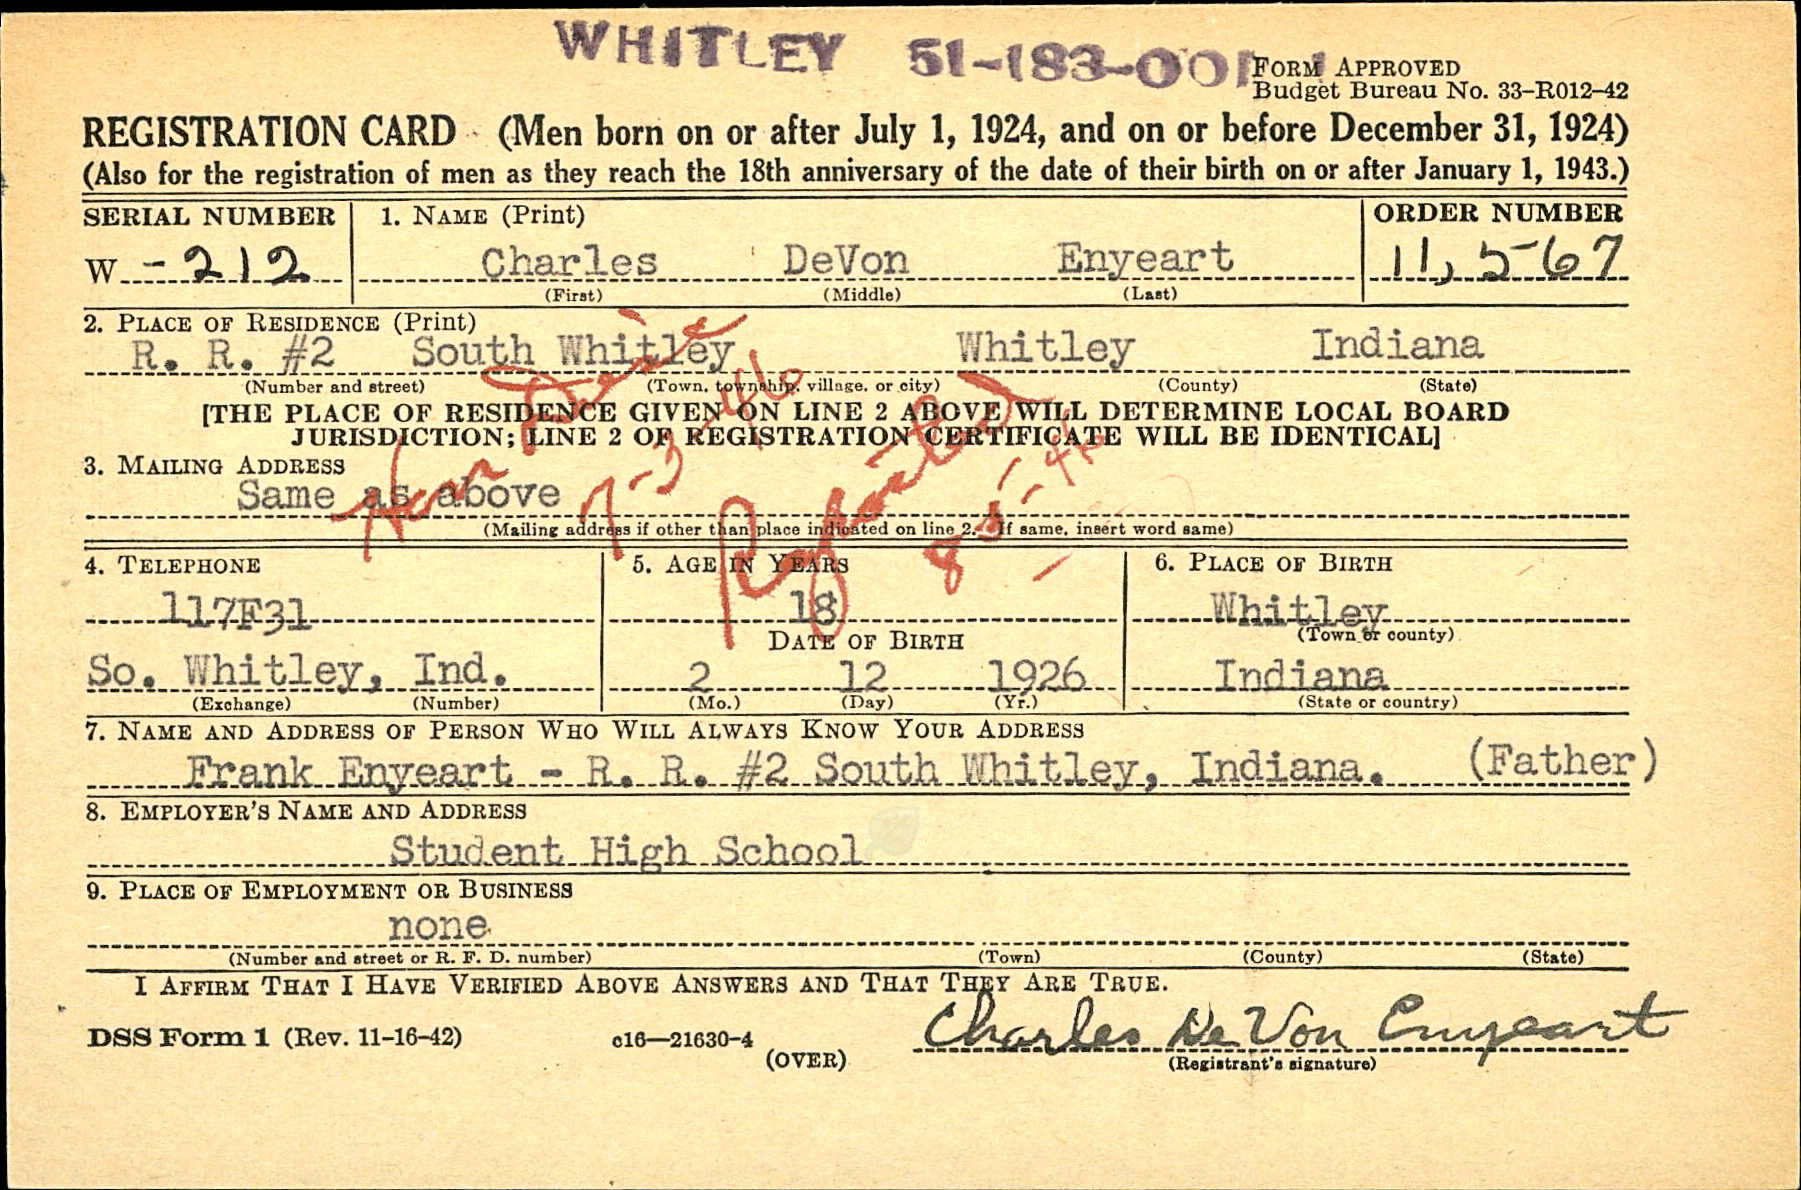 WHITLEY 51-183-001
FORM APPROVED
Budget Bureau No. 33-R012-42
REGISTRATION CARD (Men born on or after July 1, 1924, and on or before December 31, 1924)
(Also for the registration of men as they reach the 18th anniversary of the date of their birth on or after January 1, 1943.)
SERIAL NUMBER 1. NAME (Print) ORDER NUMBER
W - 212 Charles DeVon Enyeart 11,567
(First) (Middle) (Last)
2. PLACE OF RESIDENCE (Print)
R. R. #2 South Whitley Whitley Indiana
(Number and street) (Town, township, village, or city) (County) (State)
[THE PLACE OF RESIDENCE GIVEN ON LINE 2 ABOVE WILL DETERMINE LOCAL BOARD
JURISDICTION; LINE 2 OF REGISTRATION CERTIFICATE WILL BE IDENTICAL]
7-3-46
8-5-46
3. MAILING ADDRESS
Same as above
(Mailing address if other than place indicated on line 2. If same, insert word same)
4. TELEPHONE 5. AGE IN YEARS 6. PLACE OF BIRTH
117F31 18 Whitley
DATE OF BIRTH (Town or county)
So. Whitley, Ind. 2 12 1926 Indiana
(Exchange) (Number) (Mo.) (Day) (Yr.) (State or country)
7. NAME AND ADDRESS OF PERSON WHO WILL ALWAYS KNOW YOUR ADDRESS
Frank Enyeart - R. R. #2 South Whitley, Indiana. (Father)
8. EMPLOYER'S NAME AND ADDRESS
Student High School
9. PLACE OF EMPLOYMENT OR BUSINESS
none
(Number and street or R. F. D. number) (Town) (County) (State)
I AFFIRM THAT I HAVE VERIFIED ABOVE ANSWERS AND THAT THEY ARE TRUE.
DSS Form 1 (Rev. 11-16-42) c16—21630-4 Charles DeVon Enyeart
(OVER) (Registrant's signature)